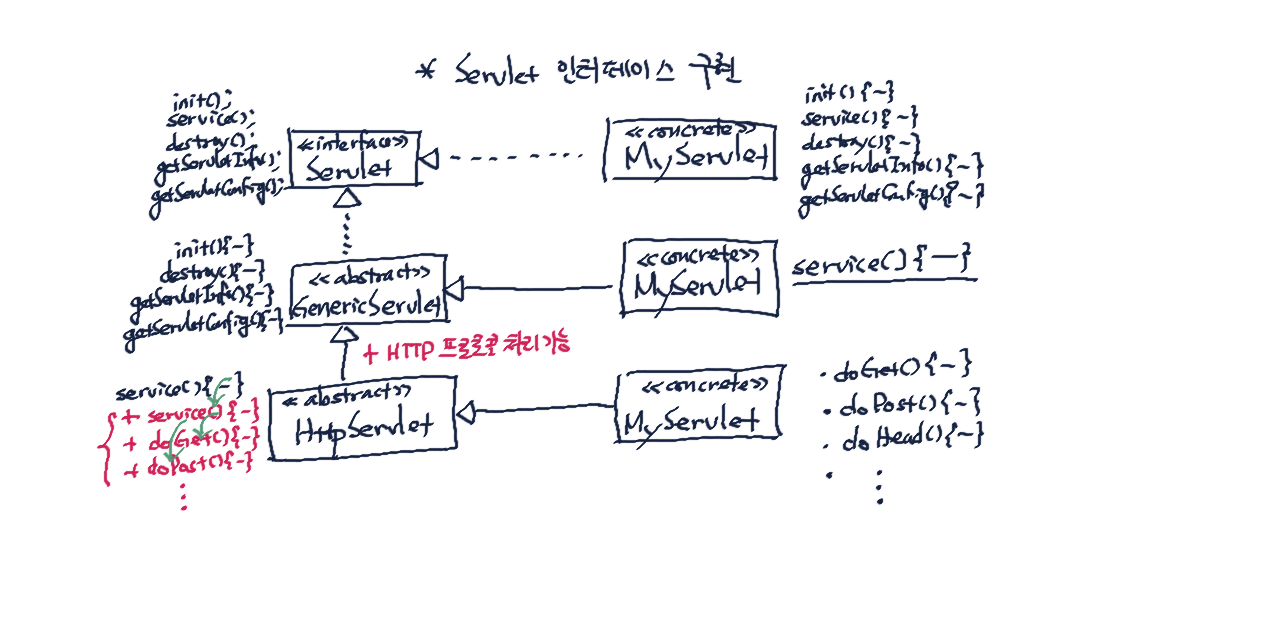 * Servlet 인터페이스 구현
init();
service();
destroy();
getServletInfo();
getServletConfig();
<<interface>>
Servlet
<<concrete>>
MyServlet
init(){~}
service(){~}
destroy(){~}
getServletInfo(){~}
getServletConfig(){~}
init(){~}
destroy(){~}
getServletInfo(){~}
getServletConfig(){~}
<<abstract>>
GenericServlet
<<concrete>>
MyServlet
service(){~}
+ HTTP 프로토콜 처리 가능
service(){~}
+ service(){~}
+ doGet(){~}
+ doPost(){~}
<<abstract>>
HttpServlet
<<concrete>>
MyServlet
• doGet(){~}
• doPost(){~}
• doHead(){~}